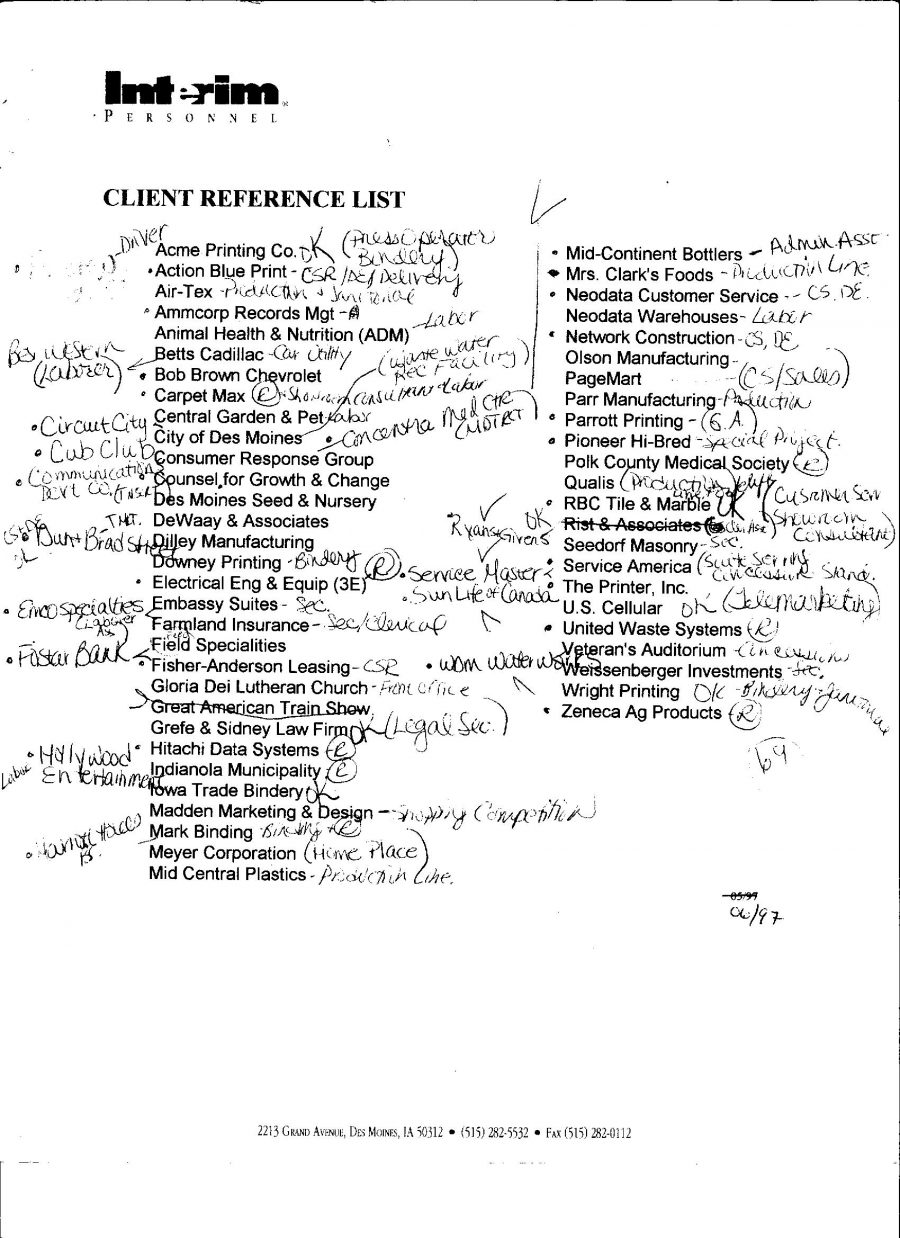 Interim®
PERSONNEL
CLIENT REFERENCE LIST
Driver
Acme Printing Co. OK (Press Operator Bindery)
• Action Blue Print - CSR/DE/Delivery
Air-Tex - Production + Janitorial
• Ammcorp Records Mgt - A
Animal Health & Nutrition (ADM) - Labor
Best Western (Laborer)
Betts Cadillac - Car Utility
(Waste Water Rec Facility)
• Bob Brown Chevrolet
• Carpet Max (R) - Showroom Consultant + Labor
• Circuit City
Central Garden & Pet - Labor
City of Des Moines
• Concentra Med CTR
• Cub Club
Consumer Response Group
• Communication
• Counsel for Growth & Change
Des Moines Seed & Nursery
DeWaay & Associates
• Dun + Bradstreet
Dilley Manufacturing
Downey Printing - Bindery (R)
• Electrical Eng & Equip (3E)
• Emco Specialties
Embassy Suites - Sec.
Farmland Insurance - Sec/Clerical
Field Specialities
• Fistar Bank
• Fisher-Anderson Leasing - CSR
• WDM Water Works
Gloria Dei Lutheran Church - Front Office
Great American Train Show
Grefe & Sidney Law Firm OK (Legal Sec.)
• Hollywood Entertainment
Labor
• Hitachi Data Systems (R)
Indianola Municipality (R)
Iowa Trade Bindery OK
Madden Marketing & Design - Shopping Competition
Mark Binding - Bindery (R)
Meyer Corporation (Home Place)
Mid Central Plastics - Production Line.
• Mid-Continent Bottlers - Admin. Asst
• Mrs. Clark's Foods - Production Line
• Neodata Customer Service -- CS, DE.
Neodata Warehouses - Labor
• Network Construction - CS, DE
Olson Manufacturing -
PageMart (CS/Sales)
Parr Manufacturing - Production
• Parrott Printing - (G.A.)
• Pioneer Hi-Bred - Special Project.
Polk County Medical Society (R)
Qualis (Production Line
• RBC Tile & Marble OK (Customer Serv Showroom Consultant)
Ryans + Givens OK
Rist & Associates
Seedorf Masonry - Sec.
• Service Master
• Service America (Suite Serving Concession Stand.
• Sun Life of Canada
• The Printer, Inc.
U.S. Cellular OK (Telemarketing)
• United Waste Systems (R)
Veteran's Auditorium - Concession
Weissenberger Investments - Sec.
Wright Printing OK - Bindery - Janitorial
• Zeneca Ag Products (R)
69
05/97
06/97
2213 GRAND AVENUE, DES MOINES, IA 50312 • (515) 282-5532 • FAX (515) 282-0112